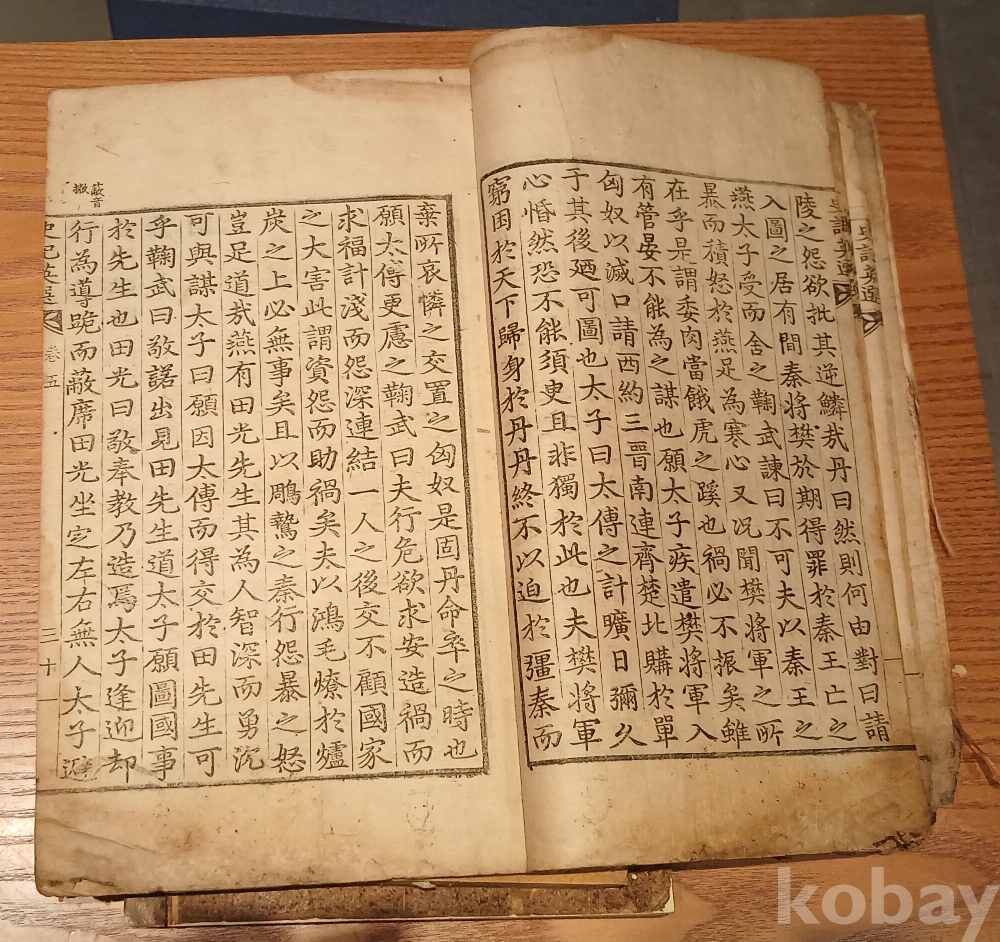 陵之怨欲批其逆鱗㢤丹曰然則何由對曰請
入圖之居有間秦將樊於期得罪於秦王亡之
燕太子受而舍之鞠武諫曰不可夫以秦王之
暴而積怒於燕足為寒心又况聞樊將軍之所
在乎是謂委肉當餓虎之蹊也禍必不振矣雖
有管晏不能為之謀也願太子疾遣樊將軍入
匈奴以滅口請西約三晋南連齊楚北購於單
于其後廼可圖也太子曰太傅之計曠日彌久
心惛然恐不能須臾且非獨於此也夫樊將軍
窮困於天下歸身於丹丹終不以迫於彊秦而
棄所哀憐之交置之匈奴是固丹命卒之時也
願太傅更慮之鞠武曰夫行危欲求安造禍而
求福計淺而怨深連結一人之後交不顧國家
之大害此謂資怨而助禍矣夫以鴻毛燎於爐
炭之上必無事矣且以鵰鷙之秦行怨暴之怒
豈足道㢤燕有田光先生其為人智深而勇沉
可與謀太子曰願因太傅而得交於田先生可
乎鞠武曰敬諾出見田先生道太子願圖國事
於先生也田光曰敬奉教乃造焉太子逢迎却
行為導跪而蔽席田光坐定左右無人太子避
蔽音
撇
史記英選
卷五
三十
史記英選
kobay